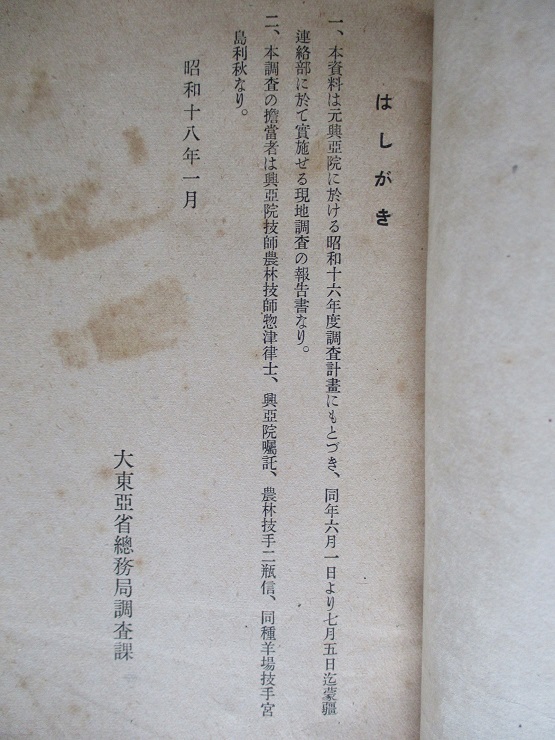 はしがき
一、本資料は元興亞院に於ける昭和十六年度調査計畫にもとづき、同年六月一日より七月五日迄蒙疆
連絡部に於て實施せる現地調査の報告書なり。
二、本調査の擔當者は興亞院技師農林技師惣津律士、興亞院囑託、農林技手二瓶信、同種羊場技手宮
島利秋なり。
昭和十八年一月
大東亞省總務局調査課